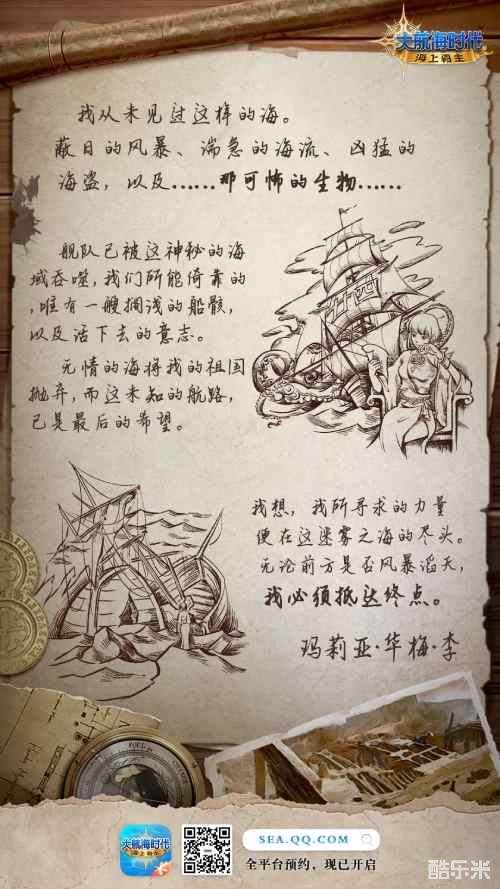 大航海时代
海上霸主
我从未见过这样的海。
蔽日的风暴、湍急的海流、凶猛的
海盗，以及……那可怖的生物……
舰队已被这神秘的海
域吞噬，我们所能倚靠的
，唯有一艘搁浅的船骸，
以及活下去的意志。
无情的海将我的祖国
抛弃，而这未知的航路，
已是最后的希望。
我想，我所寻求的力量
便在这迷雾之海的尽头。
无论前方是否风暴滔天，
我必须抵达终点。
玛莉亚·华梅·李
大航海时代
海上霸主
SEA.QQ.COM
全平台预约，现已开启
酷乐米